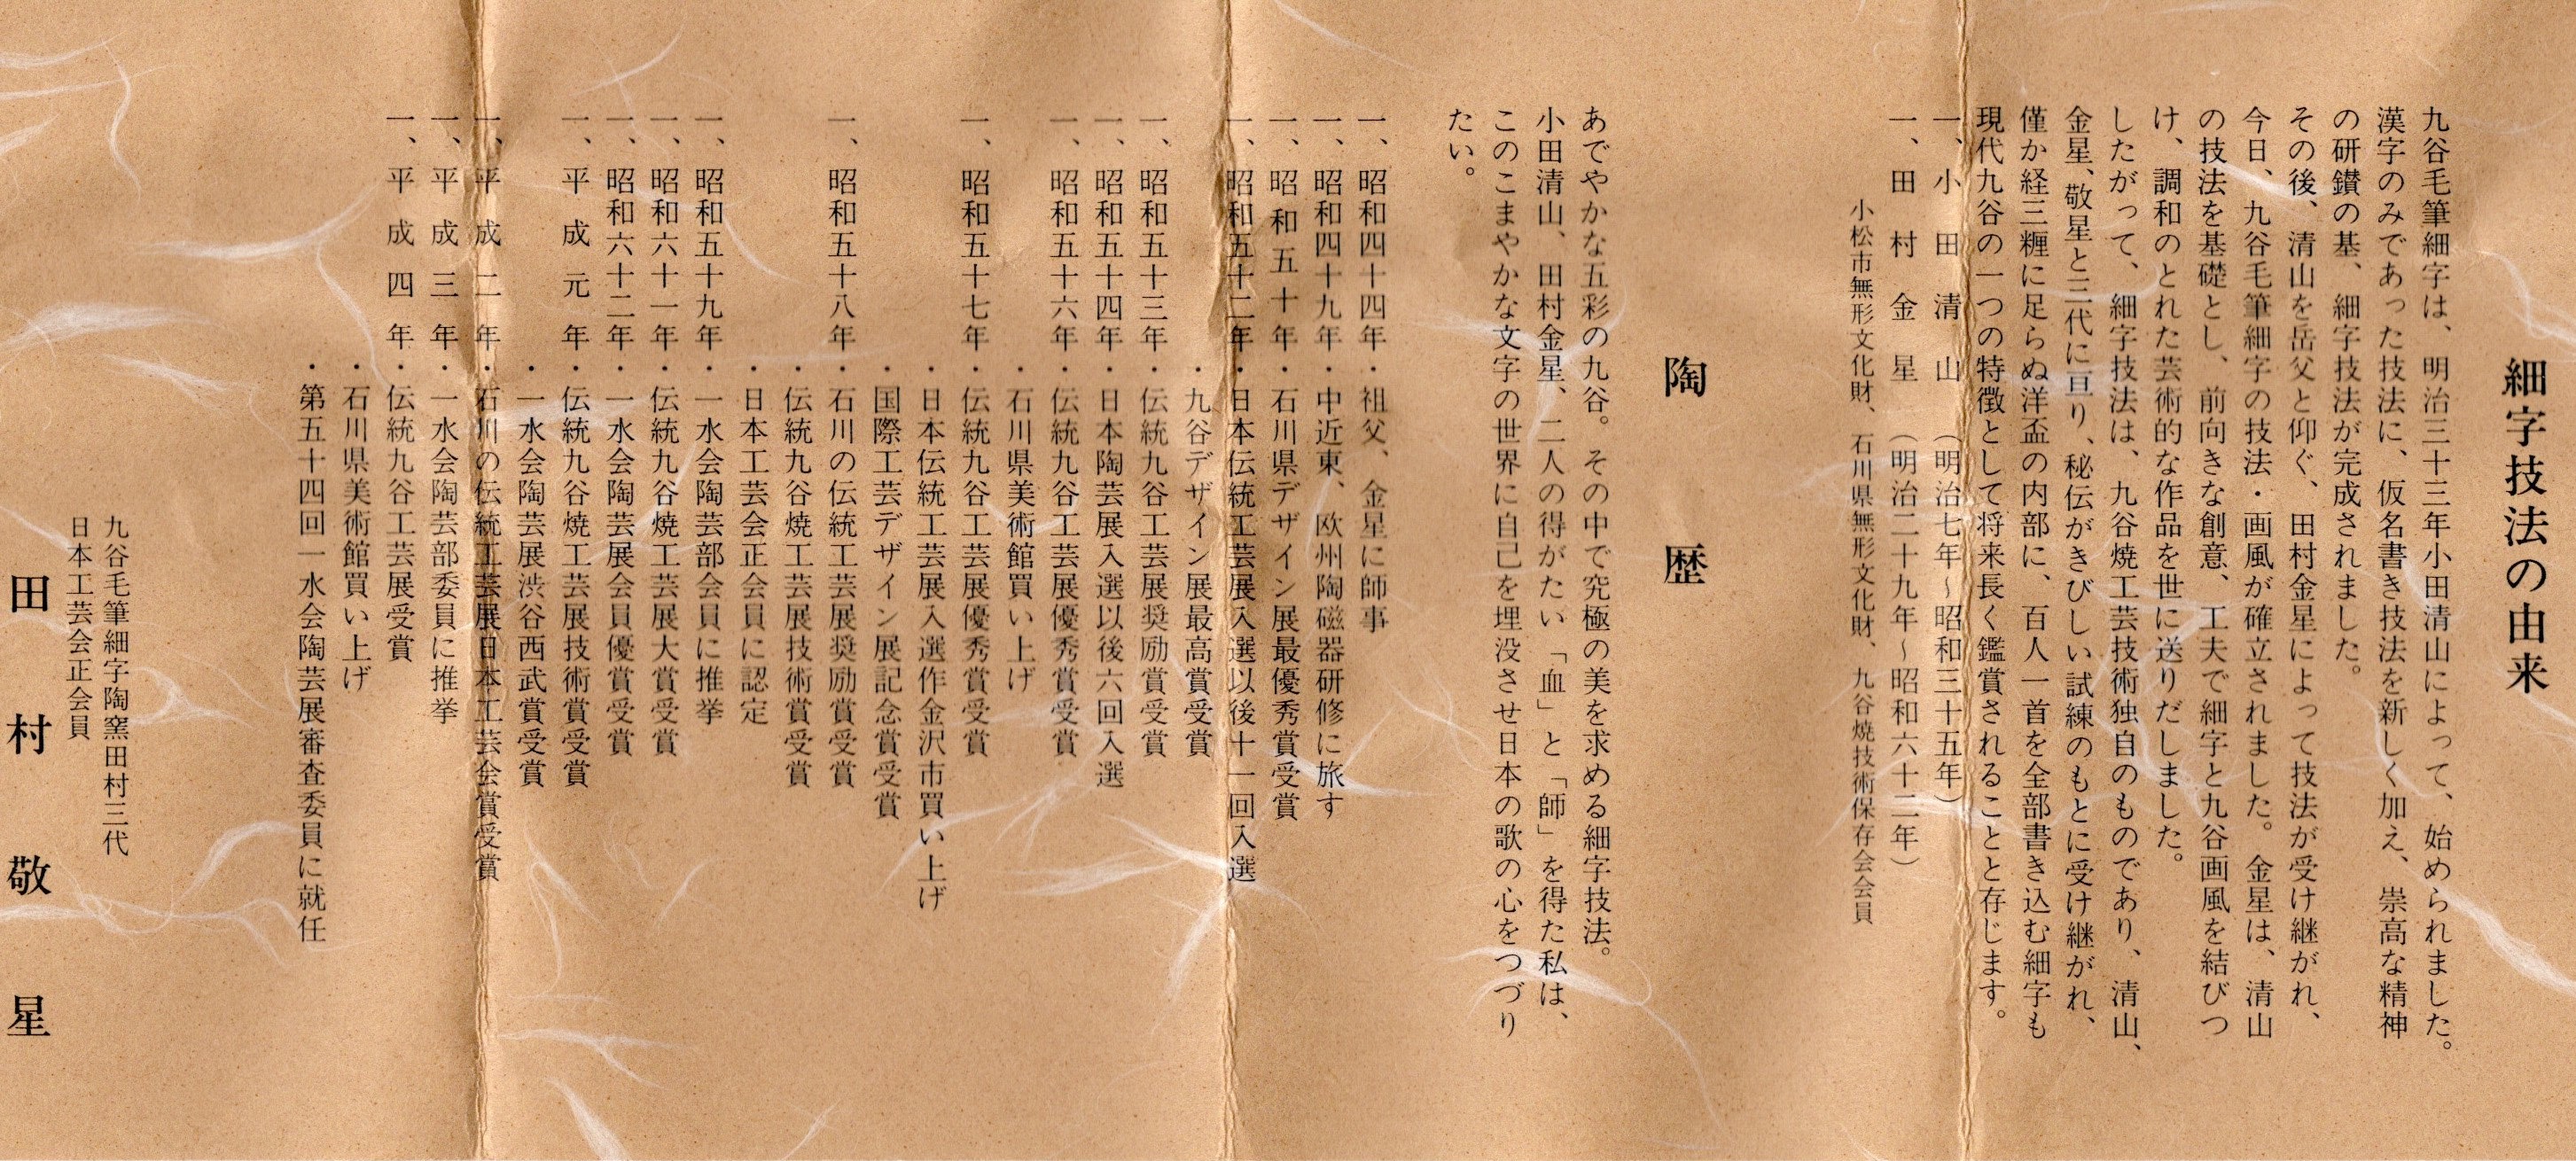 細字技法の由来
九谷毛筆細字は、明治三十三年小田清山によって、始められました。
漢字のみであった技法に、仮名書き技法を新しく加え、崇高な精神
の研鑚の基、細字技法が完成されました。
その後、清山を岳父と仰ぐ、田村金星によって技法が受け継がれ、
今日、九谷毛筆細字の技法・画風が確立されました。金星は、清山
の技法を基礎とし、前向きな創意、工夫で細字と九谷画風を結びつ
け、調和のとれた芸術的な作品を世に送りだしました。
したがって、細字技法は、九谷焼工芸技術独自のものであり、清山、
金星、敬星と三代に亘り、秘伝がきびしい試練のもとに受け継がれ、
僅か経三糎に足らぬ洋盃の内部に、百人一首を全部書き込む細字も
現代九谷の一つの特徴として将来長く鑑賞されることと存じます。
一、小田清山（明治七年～昭和三十五年）
一、田村金星（明治二十九年～昭和六十二年）
小松市無形文化財、石川県無形文化財、九谷焼技術保存会会員
陶歴
あでやかな五彩の九谷。その中で究極の美を求める細字技法。
小田清山、田村金星、二人の得がたい「血」と「師」を得た私は、
このこまやかな文字の世界に自己を埋没させ日本の歌の心をつづり
たい。
一、昭和四十四年・祖父、金星に師事
一、昭和四十九年・中近東、欧州陶磁器研修に旅す
一、昭和五十年・石川県デザイン展最優秀賞受賞
一、昭和五十二年・日本伝統工芸展入選以後十一回入選
・九谷デザイン展最高賞受賞
一、昭和五十三年・伝統九谷工芸展奨励賞受賞
一、昭和五十四年・日本陶芸展入選以後六回入選
一、昭和五十六年・伝統九谷工芸展優秀賞受賞
・石川県美術館買い上げ
一、昭和五十七年・伝統九谷工芸展優秀賞受賞
・日本伝統工芸展入選作金沢市買い上げ
・国際工芸デザイン展記念賞受賞
一、昭和五十八年・石川の伝統工芸展奨励賞受賞
・伝統九谷焼工芸展技術賞受賞
・日本工芸会正会員に認定
一、昭和五十九年・一水会陶芸部会員に推挙
一、昭和六十一年・伝統九谷焼工芸展大賞受賞
一、昭和六十二年・一水会陶芸展会員優賞受賞
一、平成元年・伝統九谷焼工芸展技術賞受賞
・一水会陶芸展渋谷西武賞受賞
一、平成二年・石川の伝統工芸展日本工芸会賞受賞
一、平成三年・一水会陶芸部委員に推挙
一、平成四年・伝統九谷工芸展受賞
・石川県美術館買い上げ
・第五十四回一水会陶芸展審査委員に就任
九谷毛筆細字陶窯田村三代
日本工芸会正会員
田村敬星